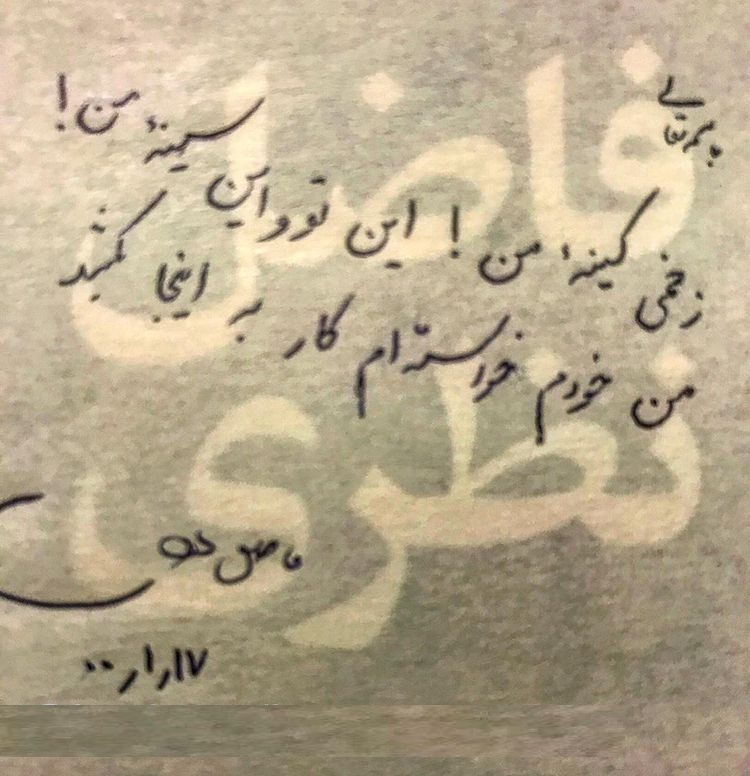 فاضل
نظری
زخمی کینهٔ من! این تو و این سینهٔ من!
من خودم خواسته‌ام کار به اینجا بکشد
فاضل نظری
۱۷ر۱ر۰۰